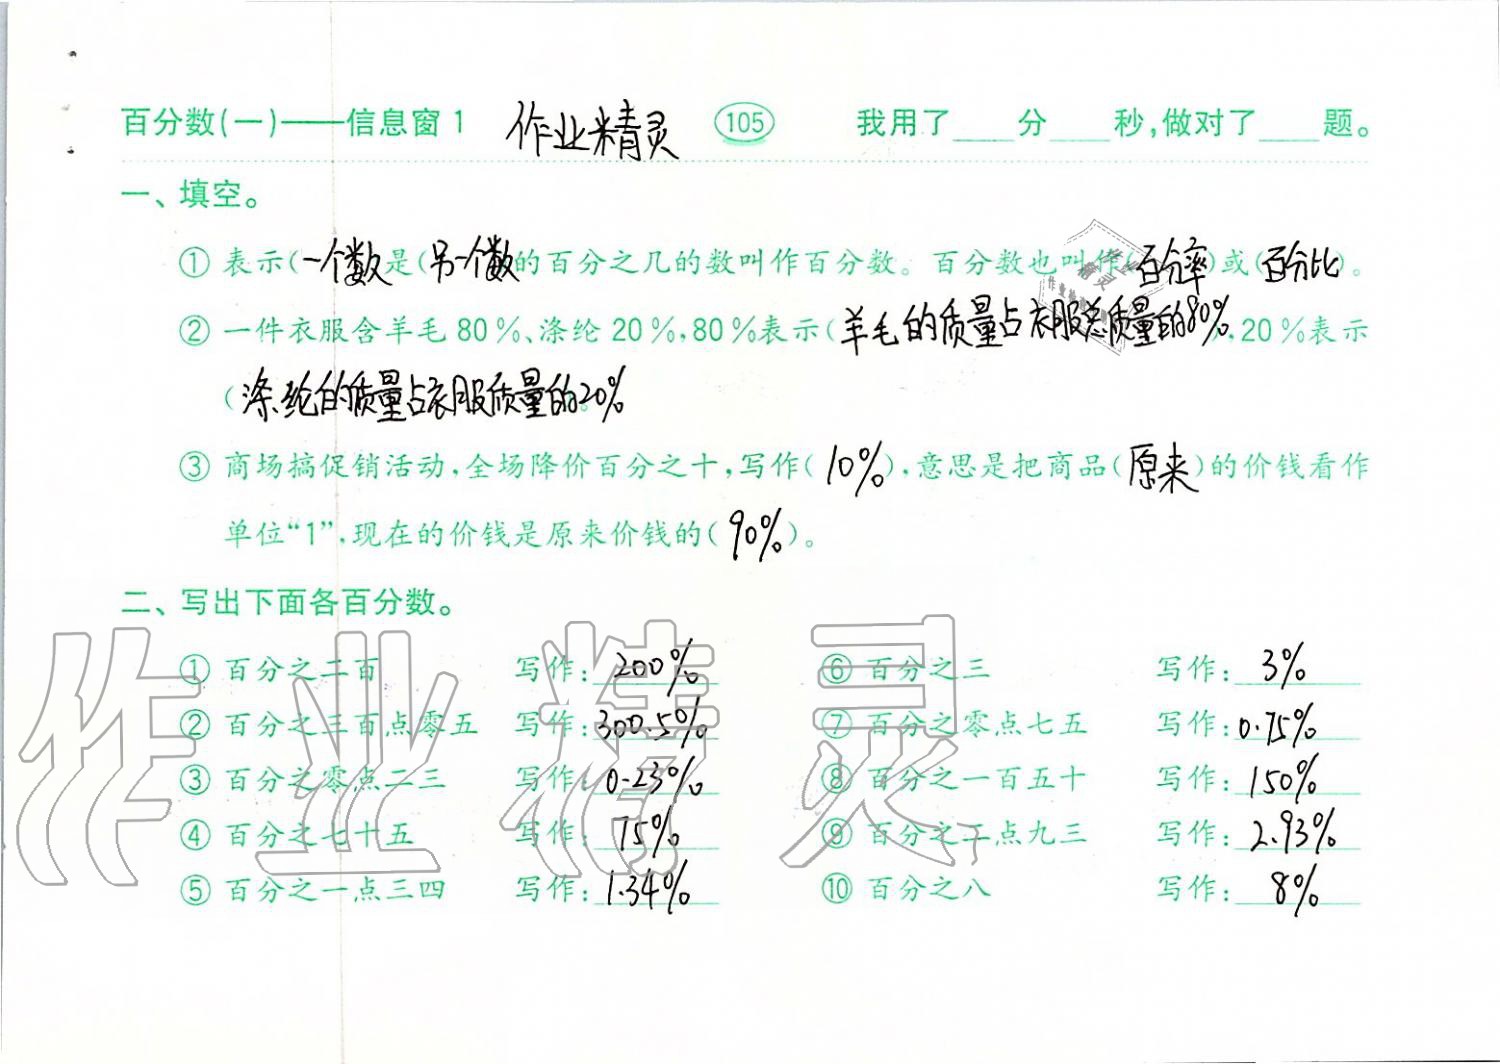 百分数(一)——信息窗1 作业精灵 105 我用了____分____秒,做对了____题。
一、填空。
① 表示(一个数是(另一个数的百分之几的数叫作百分数。百分数也叫作(百分率)或(百分比)。
② 一件衣服含羊毛80%、涤纶20%,80%表示(羊毛的质量占衣服总质量的80%),20%表示
(涤纶的质量占衣服质量的20%
③ 商场搞促销活动,全场降价百分之十,写作(10%),意思是把商品(原来)的价钱看作
单位“1”,现在的价钱是原来价钱的(90%)。
二、写出下面各百分数。
① 百分之二百 写作:200% ⑥ 百分之三 写作:3%
② 百分之三百点零五 写作:300.5% ⑦ 百分之零点七五 写作:0.75%
③ 百分之零点二三 写作:0.23% ⑧ 百分之一百五十 写作:150%
④ 百分之七十五 写作:75% ⑨ 百分之二点九三 写作:2.93%
⑤ 百分之一点三四 写作:1.34% ⑩ 百分之八 写作:8%
作业精灵